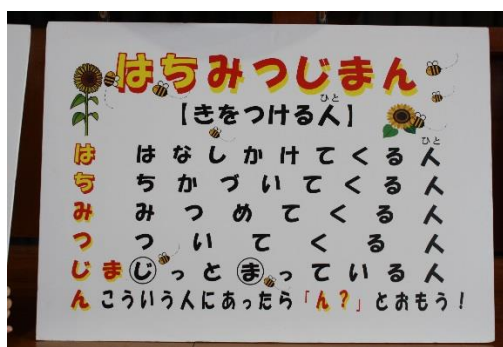 はちみつじまん
【きをつける人】
ひと
は はなしかけてくる人
ひと
ち ちかづいてくる人
み みつめてくる人
つ ついてくる人
じま じっとまっている人
ん こういう人にあったら「ん?」とおもう!